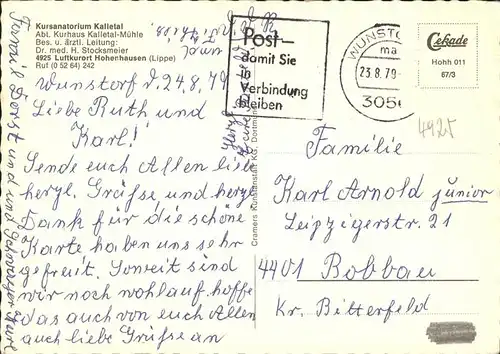 Kursanatorium Kalletal
Abt. Kurhaus Kalletal-Mühle
Bes. u. ärztl. Leitung:
Dr. med. H. Stocksmeier
4925 Luftkurort Hohenhausen (Lippe)
Ruf (0 52 64) 242
Wunstorf d. 24.8.79
Liebe Ruth und
Karl!
Sende euch Allen liebe
herzl. Grüße und herzl.
Dank für die schöne
Karte haben uns sehr
gefreut. Soweit sind
wir noch wohlauf hoffe
das auch von euch Allen
auch liebe Grüße an
und Schwager Karl
Cramers Kunstanstalt KG, Dortmund
Post-
damit Sie
in
Verbindung
bleiben
WUNSTO
23.8.79
305
Cekade
Hohh 011
67/3
4925
Familie
Karl Arnold junior
Leipzigerstr. 21
4401 Bobbau
Kr. Bitterfeld